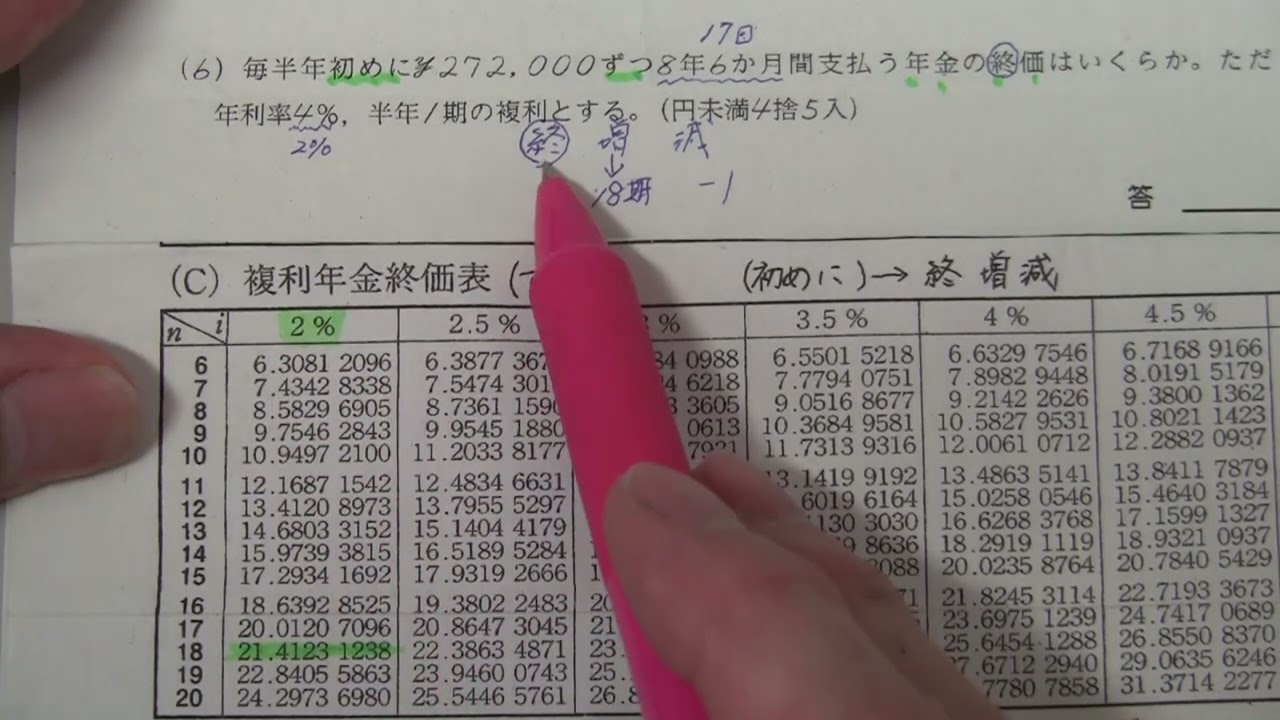 17回
(6) 毎半年初めに¥272,000ずつ8年6か月間支払う年金の終価はいくらか。ただ
年利率4%, 半年/期の複利とする。(円未満4捨5入)
2% 終 増 減
↓
18期 -1
答
(C) 複利年金終価表 (初めに)→ 終 増 減
n i 2% 2.5% % 3.5% 4% 4.5%
6 6.3081 2096 6.3877 0988 6.5501 5218 6.6329 7546 6.7168 9166
7 7.4342 8338 7.5474 301 6218 7.7794 0751 7.8982 9448 8.0191 5179
8 8.5829 6905 8.7361 1590 3605 9.0516 8677 9.2142 2626 9.3800 1362
9 9.7546 2843 9.9545 1880 0613 10.3684 9581 10.5827 9531 10.8021 1423
10 10.9497 2100 11.2033 8177 11.7313 9316 12.0061 0712 12.2882 0937
11 12.1687 1542 12.4834 6631 13.1419 9192 13.4863 5141 13.8411 7879
12 13.4120 8973 13.7955 5297 6019 6164 15.0258 0546 15.4640 3184
13 14.6803 3152 15.1404 4179 1130 3030 16.6268 3768 17.1599 1327
14 15.9739 3815 16.5189 5284 8636 18.2919 1119 18.9321 0937
15 17.2934 1692 17.9319 2666 3088 20.0235 8764 20.7840 5429
16 18.6392 8525 19.3802 2483 20 71 21.8245 3114 22.7193 3673
17 20.0120 7096 20.8647 3045 21 23.6975 1239 24.7417 0689
18 21.4123 1238 22.3863 4871 23. 25.6454 1288 26.8550 8370
19 22.8405 5863 23.9460 0743 25. 7.6712 2940 29.0635 6246
20 24.2973 6980 25.5446 5761 26.8 .7780 7858 31.3714 2277